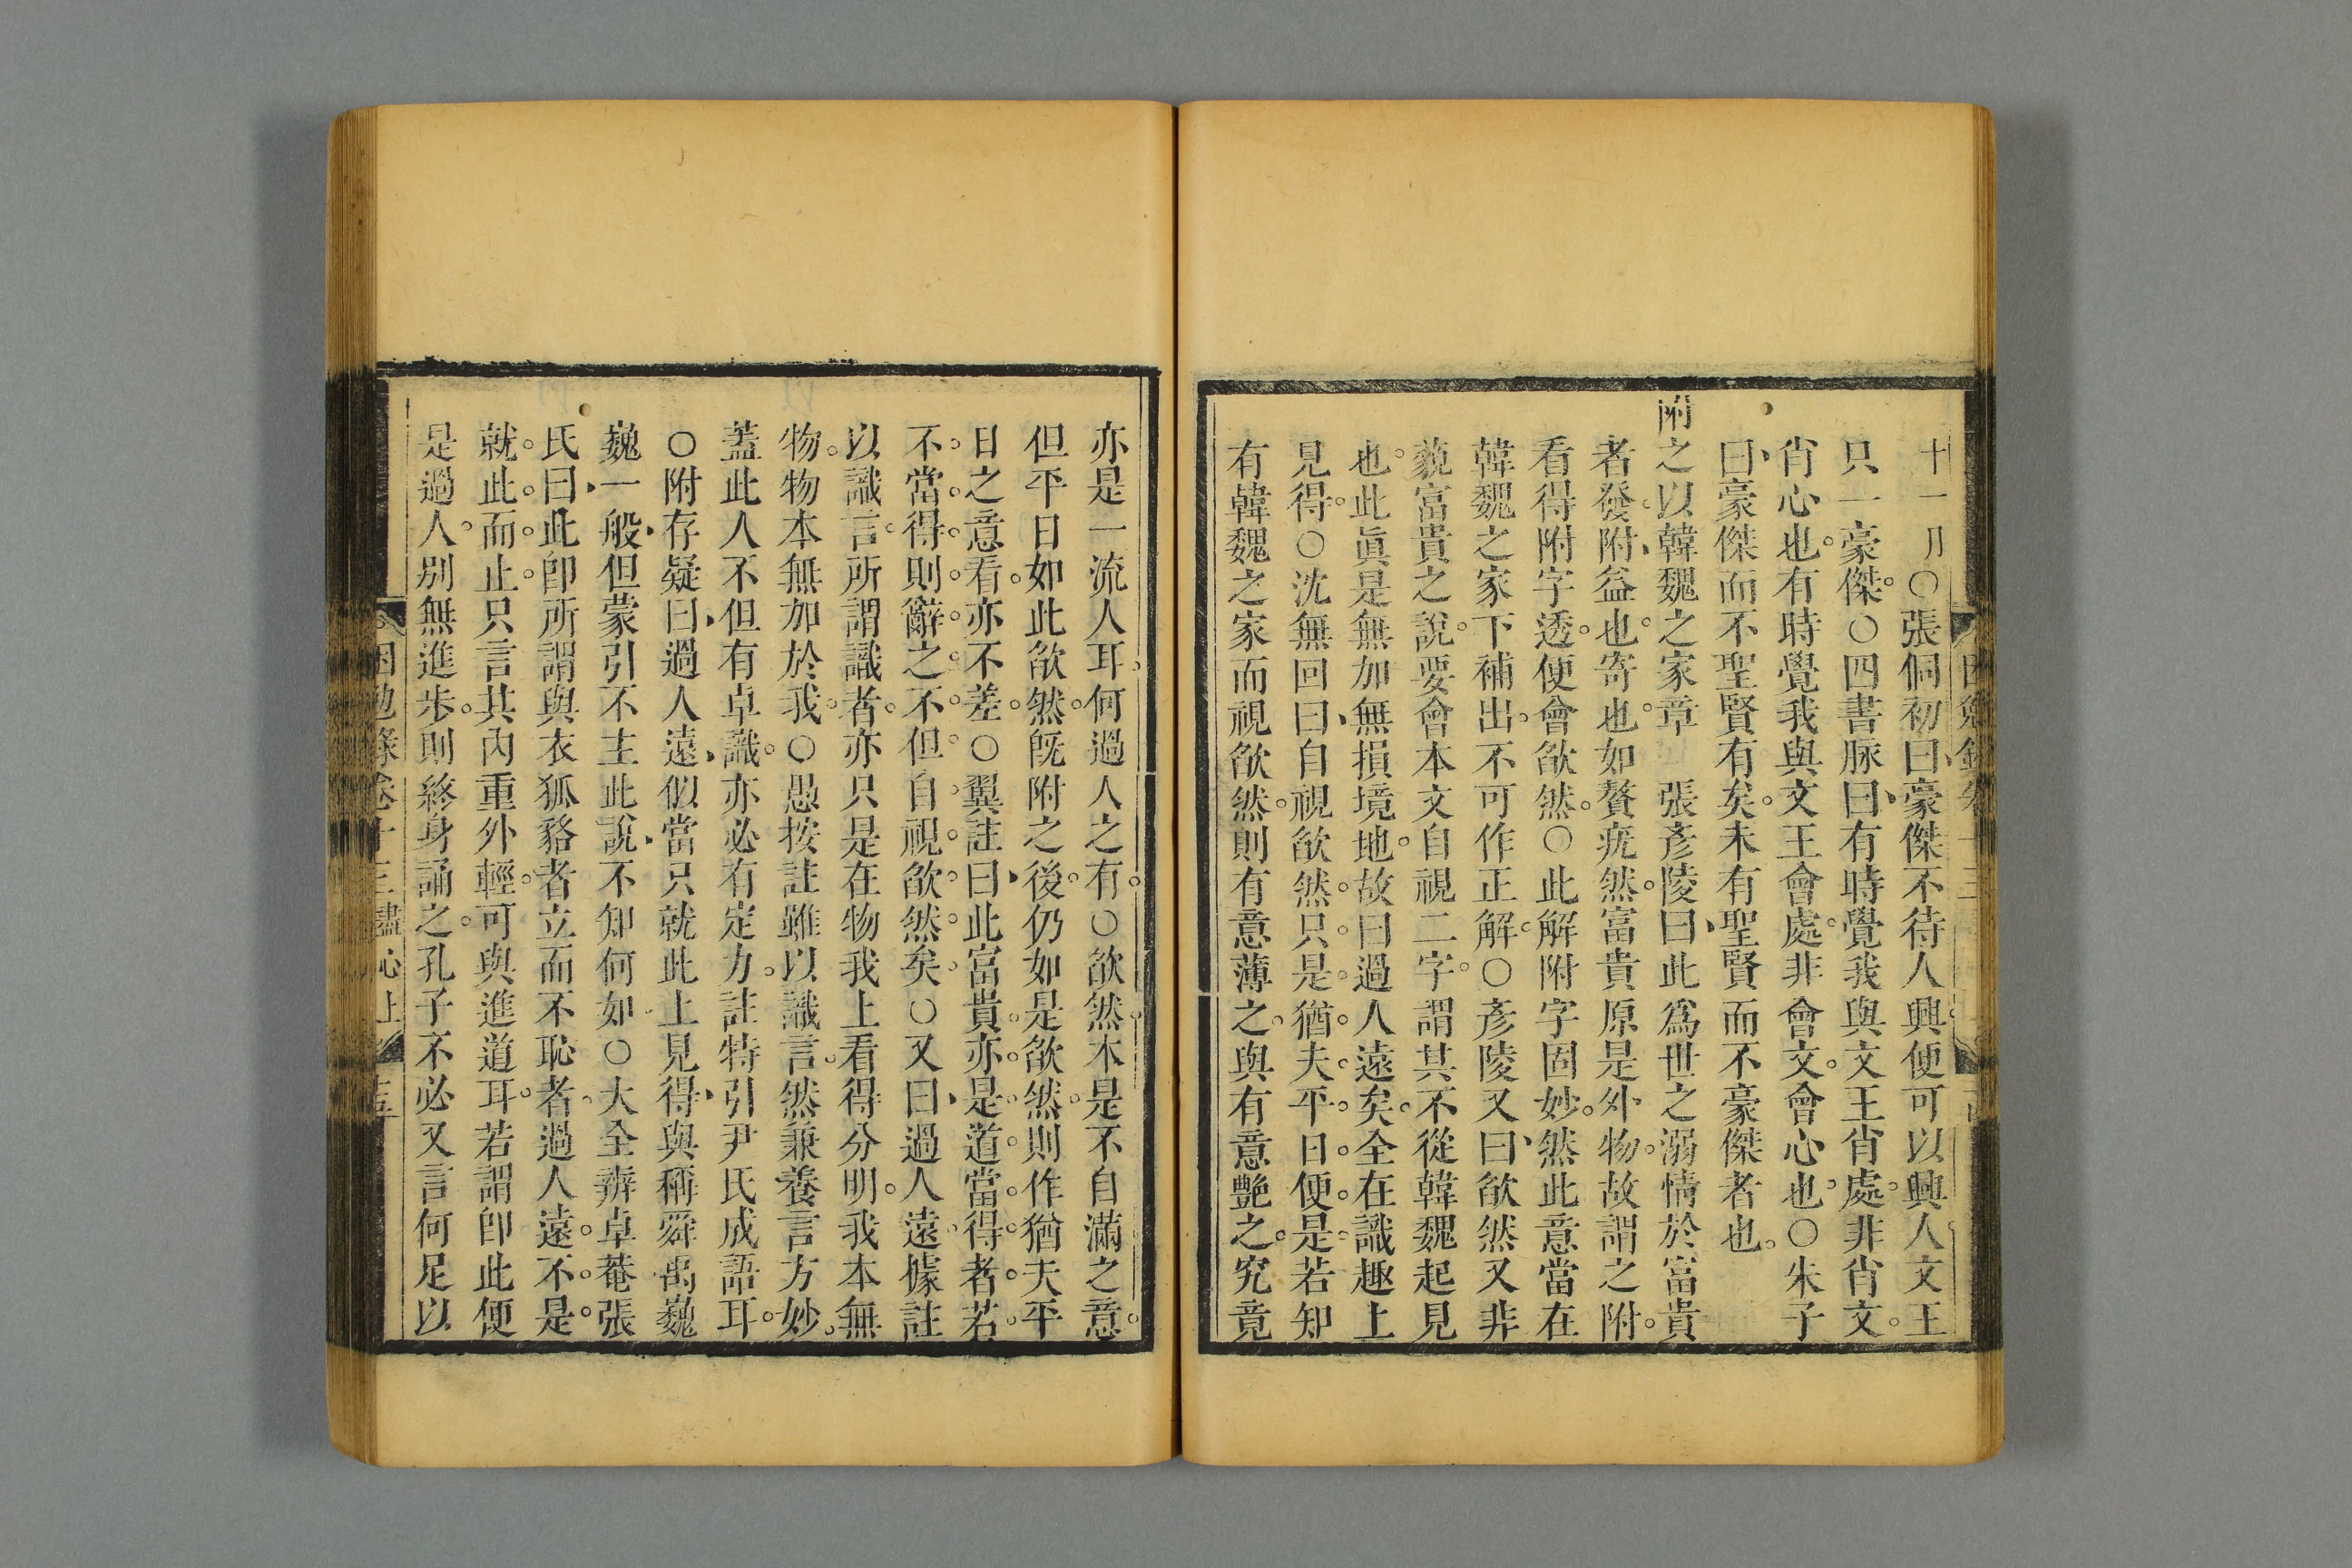 十一月○張侗初曰豪傑不待人興便可以興人文王
只一豪傑○四書脉曰有時覺我與文王肖處非肖文
肖心也有時覺我與文王會處非會文會心也○朱子
曰豪傑而不聖賢有矣未有聖賢而不豪傑者也
附之以韓魏之家章 張彥陵曰此爲世之溺情於富貴
者發附益也寄也如贅疣然富貴原是外物故謂之附
看得附字透便會欿然○此解附字固妙然此意當在
韓魏之家下補出不可作正解○彥陵又曰欿然又非
藐富貴之說要會本文自視二字謂其不從韓魏起見
也此眞是無加無損境地故曰過人遠矣全在識趣上
見得○沈無回曰自視欿然只是猶夫平日便是若知
有韓魏之家而視欿然則有意薄之與有意艷之究竟
亦是一流人耳何過人之有○欿然本是不自滿之意
但平日如此欿然旣附之後仍如是欿然則作猶夫平
日之意看亦不差○翼註曰此富貴亦是道當得者若
不當得則辭之不但自視欿然矣○又曰過人遠據註
以識言所謂識者亦只是在物我上看得分明我本無
物物本無加於我○愚按註雖以識言然兼養言方妙
蓋此人不但有卓識亦必有定力註特引尹氏成語耳
○附存疑曰過人遠似當只就此上見得與稱舜禹巍
巍一般但蒙引不主此說不知何如○大全辨卓菴張
氏曰此卽所謂與衣狐貉者立而不恥者過人遠不是
就此而止只言其內重外輕可與進道耳若謂卽此便
是過人別無進步則終身誦之孔子不必又言何足以
困勉錄卷十三盡心上